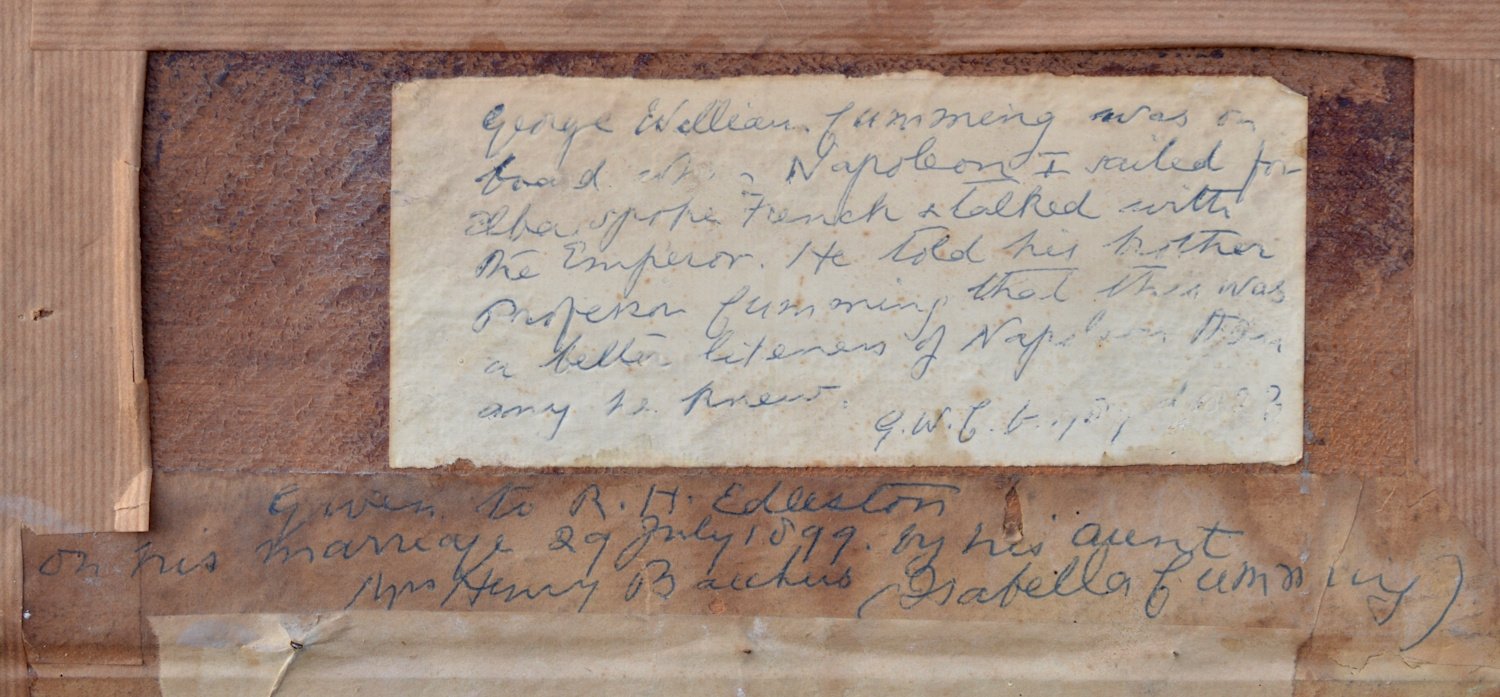 George William Cumming was on
board when Napoleon I sailed for
Elba spoke French & talked with
the Emperor. He told his brother
Professor Cumming that this was
a better likeness of Napoleon than
any he knew.
G.W.C.
Given to R. H. Edleston
on his marriage 29 July 1899. by his aunt
Mrs Henry Bacchus (Isabella Cumming)